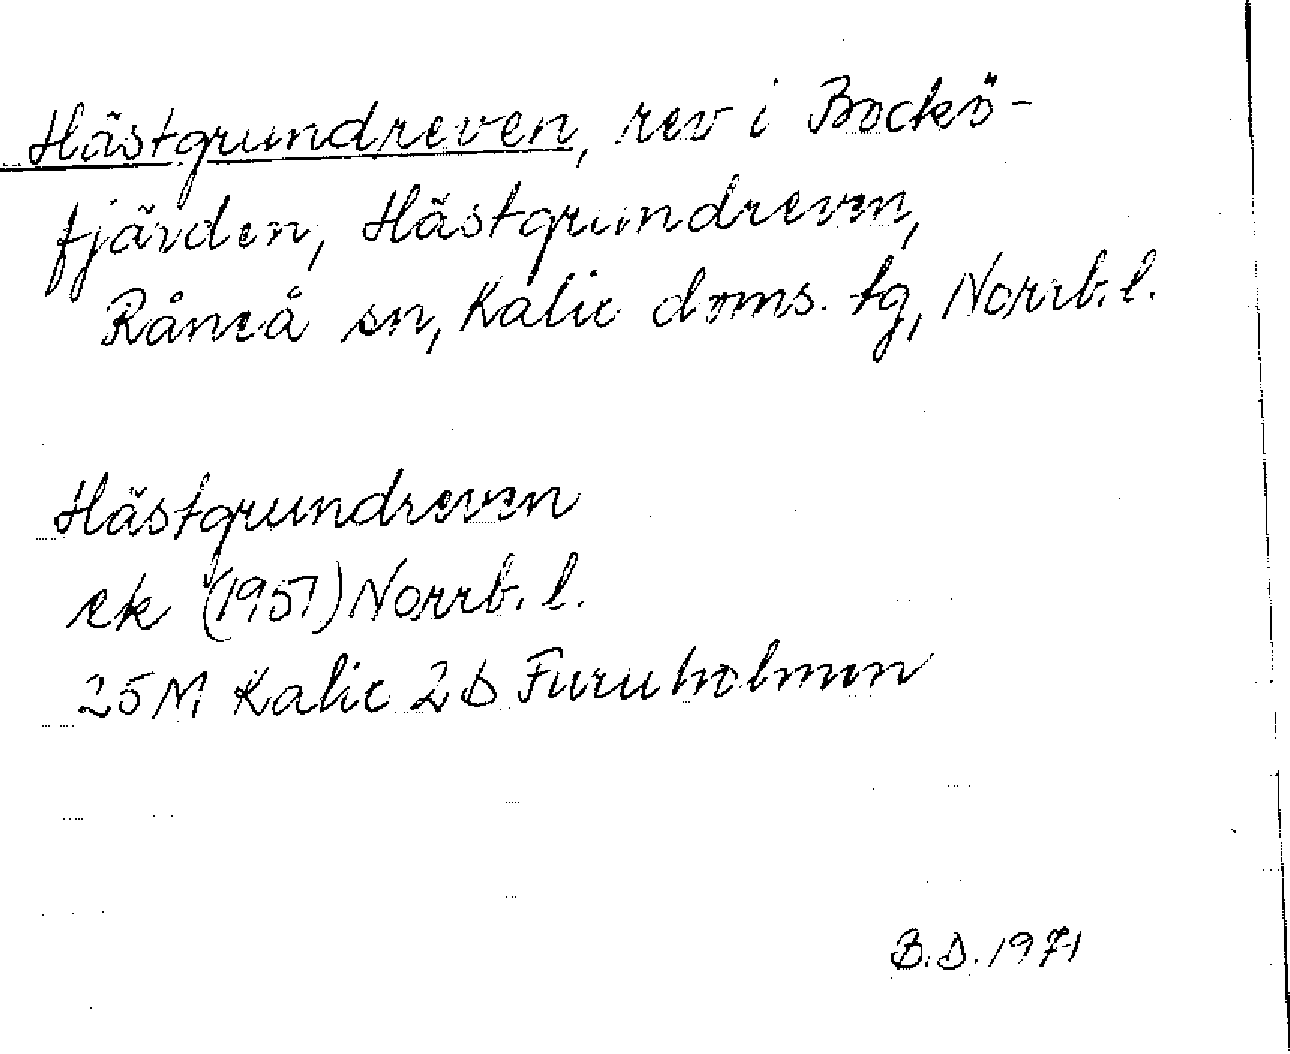 Hästgrundreven, rev i Bockö-
fjärden, Hästgrundreven,
Råneå sn, Kalix doms. tg, Norrb. l.
Hästgrundreven
ek (1951) Norrb. l.
25M Kalix 2D Furuholmen
B.D. 1971